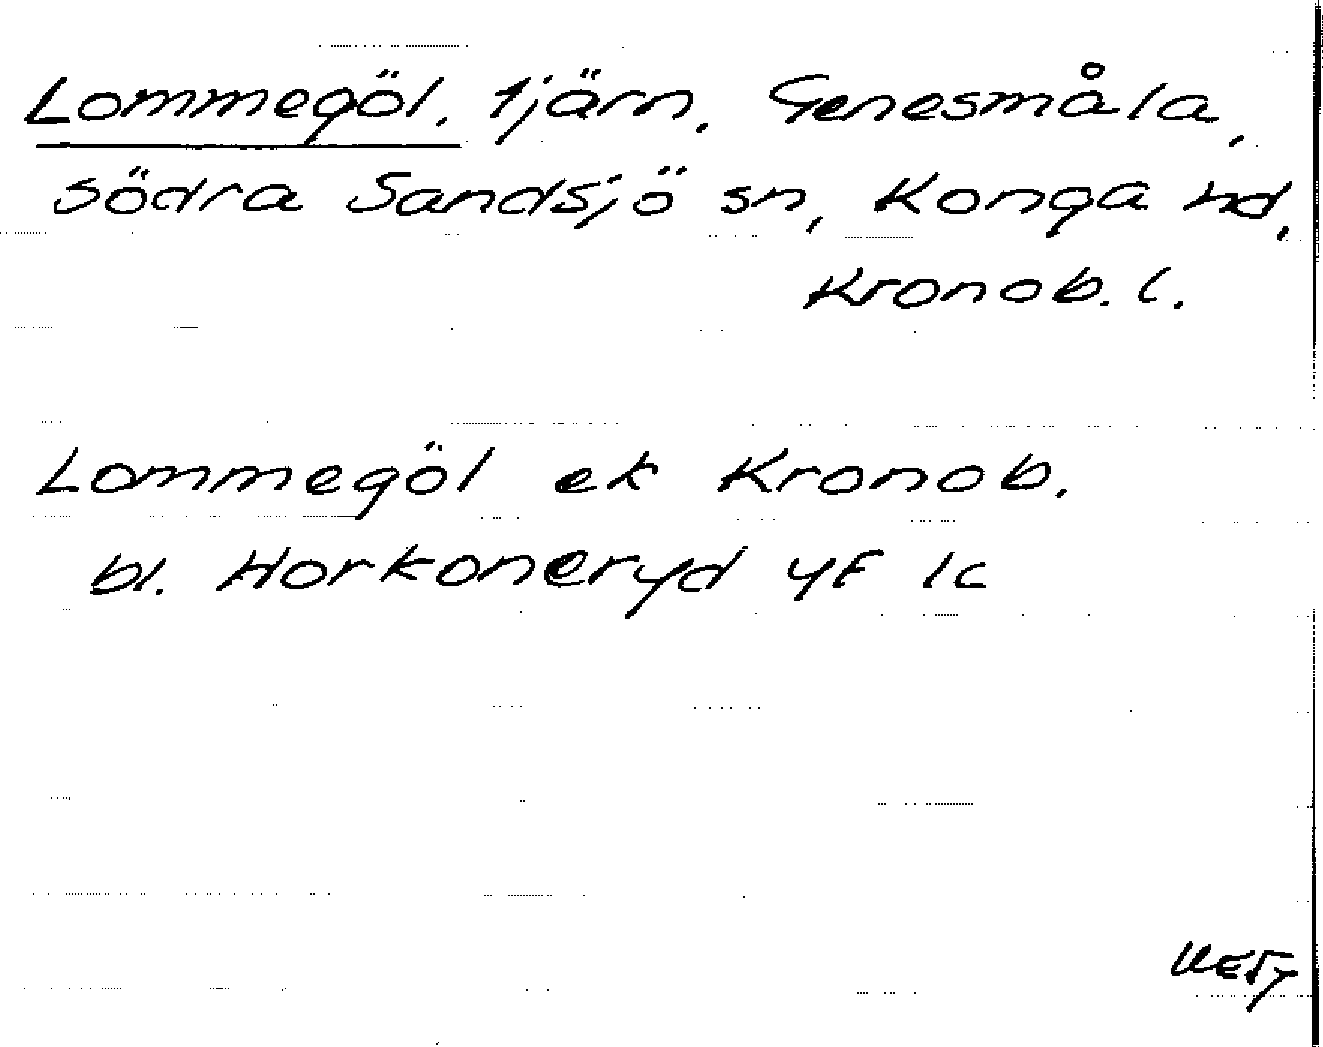 Lommegöl, tjärn, Genesmåla,
södra Sandsjö sn, Konga hd,
Kronob. l.
Lommegöl ek Kronob.
bl. Horkoneryd yF 1c